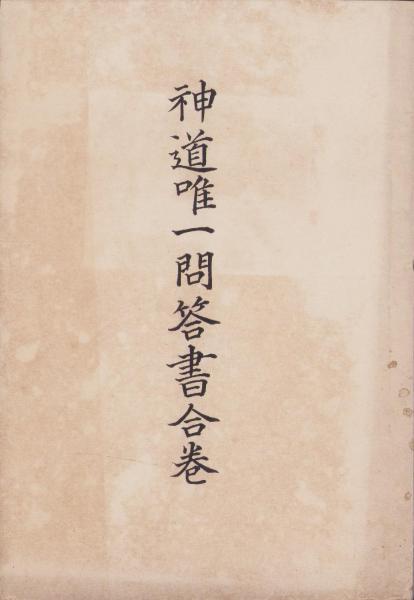 神道唯一問答書合巻